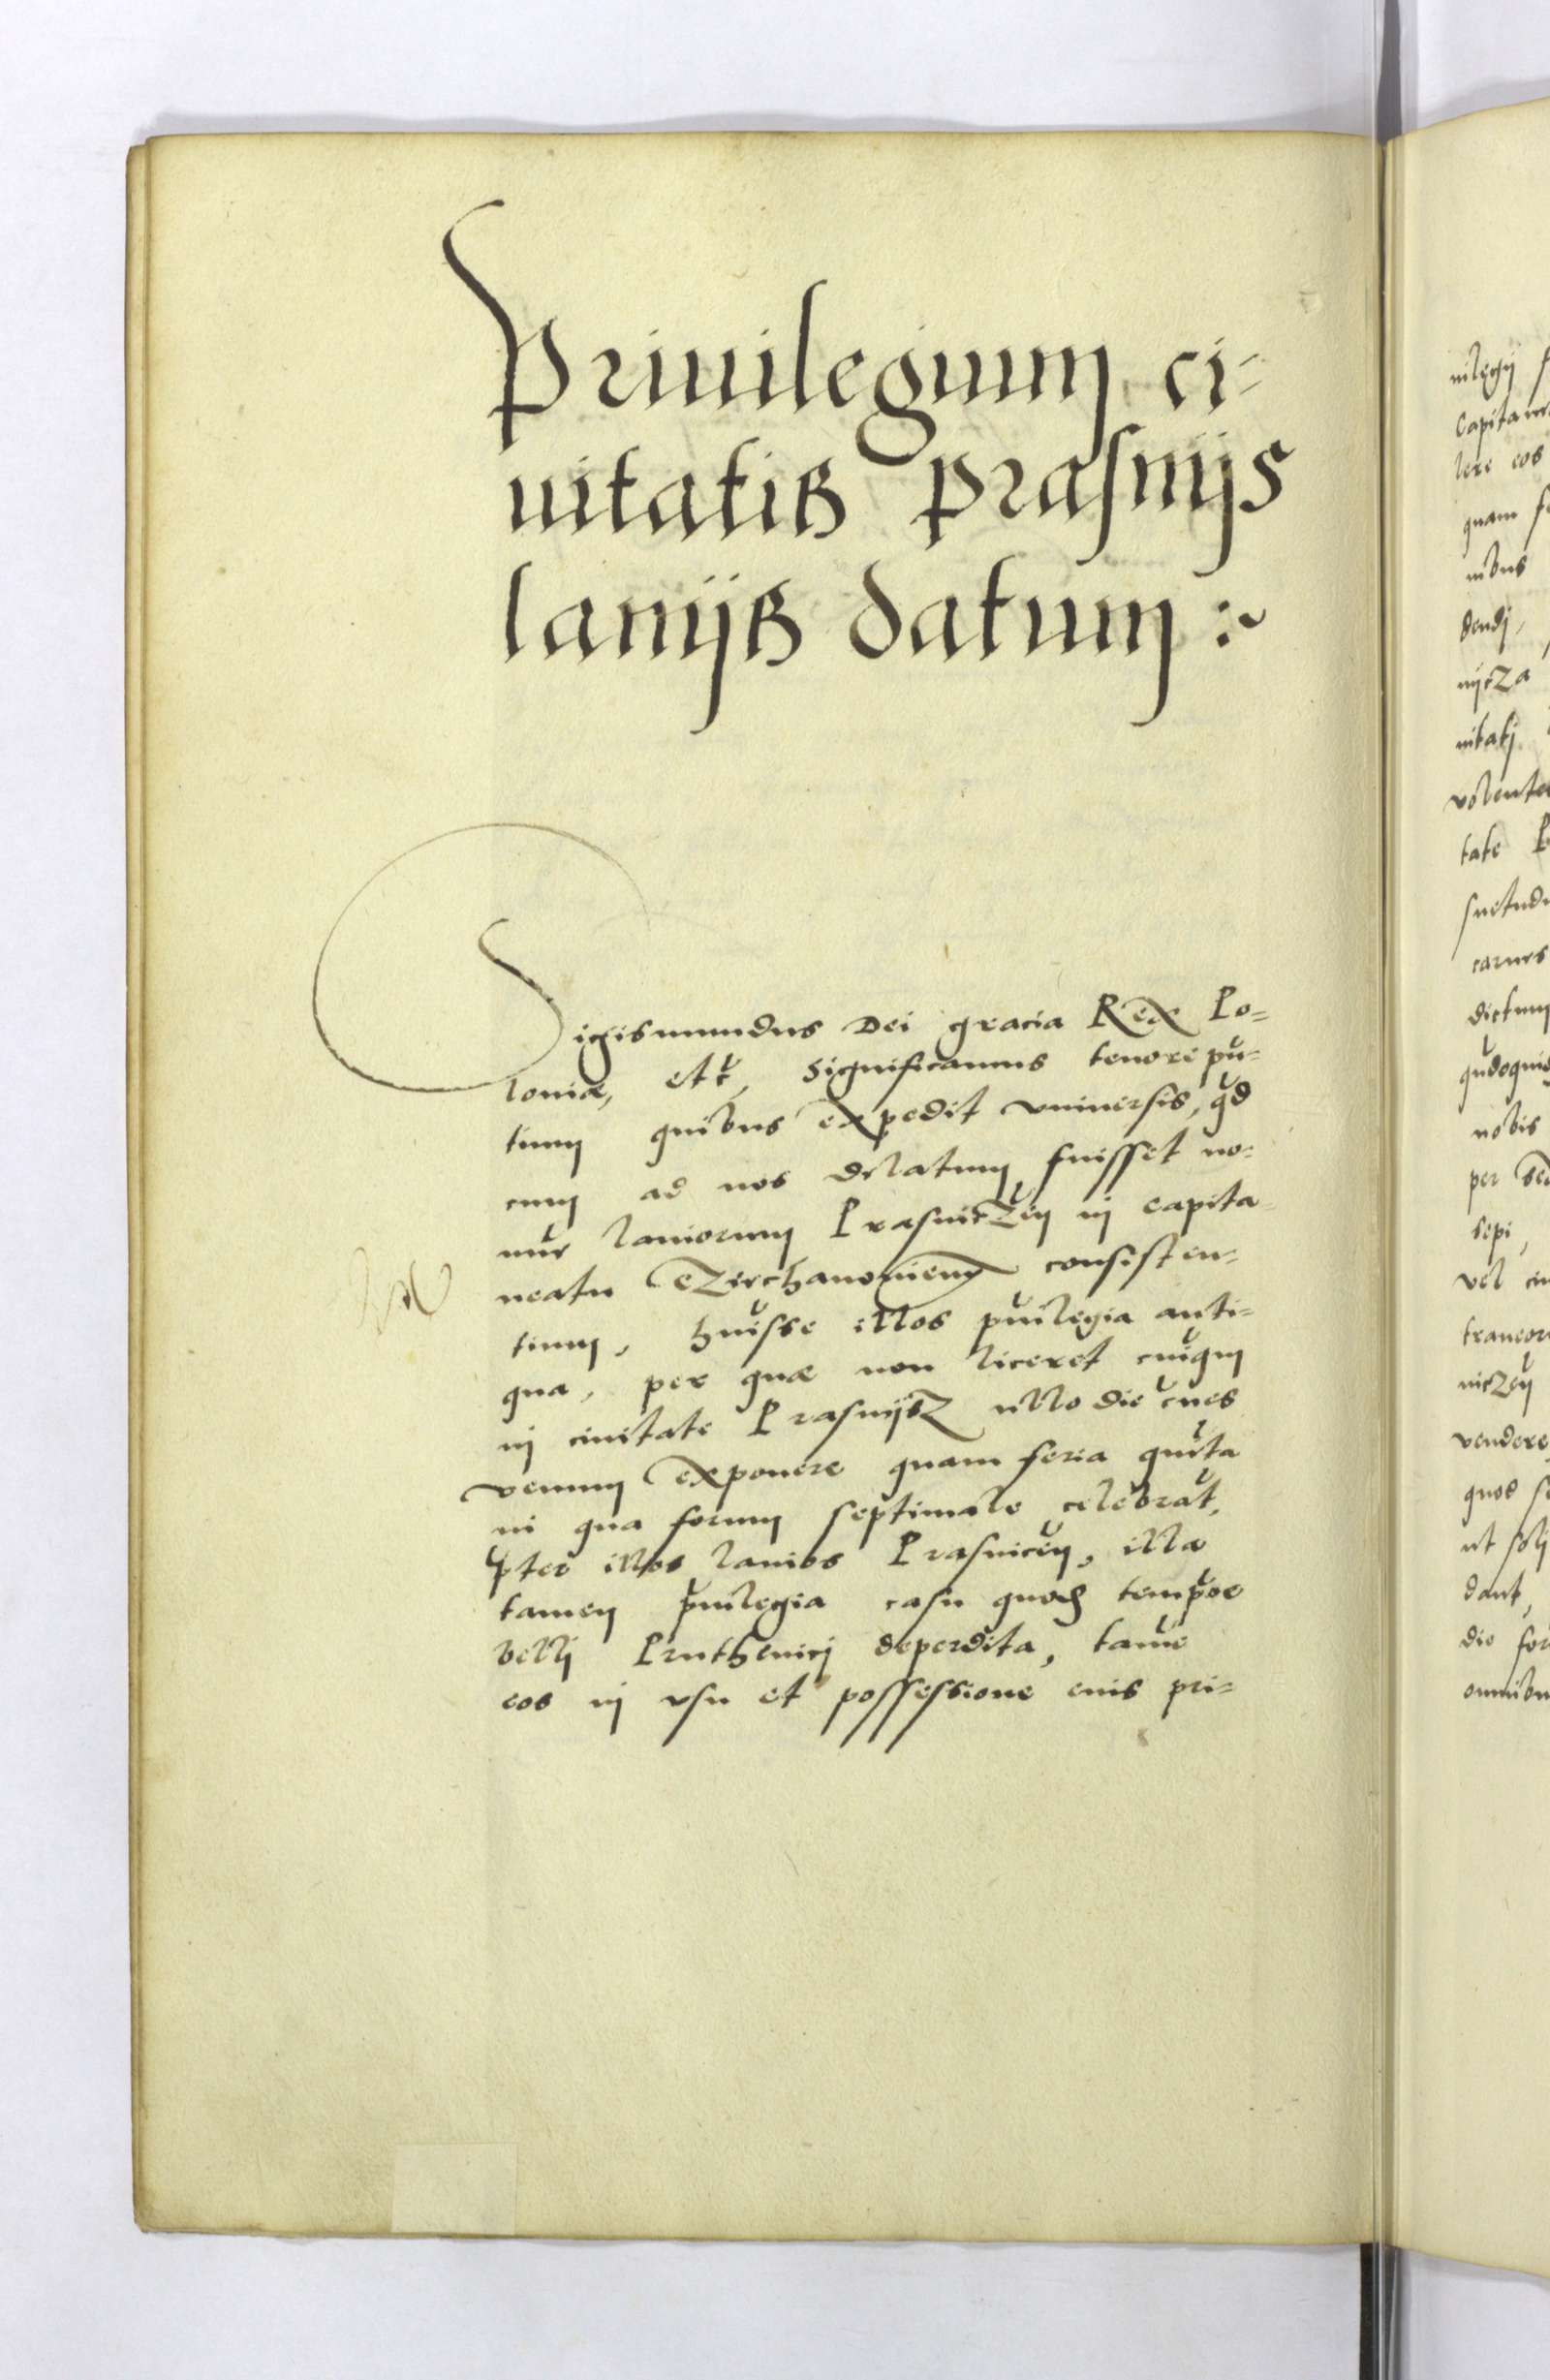 Priuilegium ci-
uitatis Prasnijs
lanijs datum :~
Sigismundus Dei gracia Rex Po=
loniæ, etc̃, Significamus tenore pñ=
tium quibus expedit vniuersis, qd̃
cum ad nos delatum fuisset no=
mĩe laniorum Prasniczeñ in capita
neatu Czirchanowien̄ consisten=
tium, hũisse illos pũilegia anti=
qua, per quæ non liceret cuiq̃m
in ciuitate Prasnijsz ullo die c̃nes
venum exponere quam feria quĩta
in qua forum septimale celebrat̃,
p̃ter illos lanios Prasniceñ, illa
tamen p̃uilegia casu quod̃ temp̃oe
belli Pruthenici deperdita, tam̃e
eos in vsu et possessione eius pri=
uilegij
Capitane
lere eos
quam
dendj,
uitatj
volentes
tate
suetudi
carnes
dictum
nobis
per
sepi,
vel
niczeñ
vendere
quod
ut
dant,
die for
omnibu